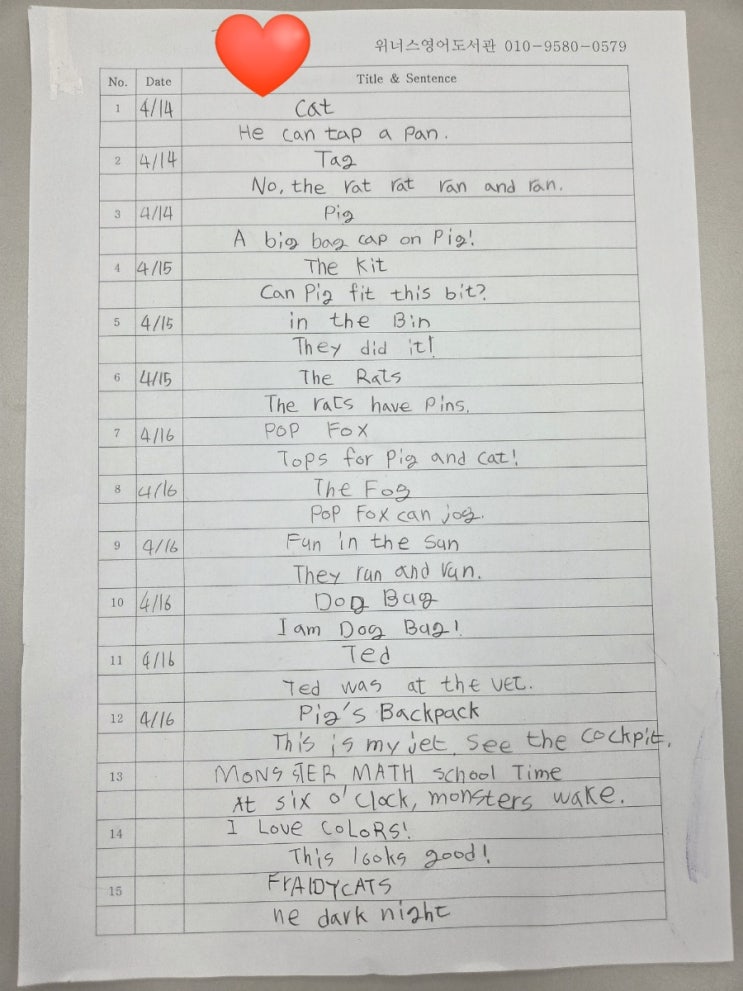 위너스영어도서관 010-9580-0579
No. Date Title & Sentence
1 4/14 Cat
He can tap a pan.
2 4/14 Tag
No, the rat rat ran and ran.
3 4/14 Pig
A big bag cap on Pig!
4 4/15 The Kit
Can Pig fit this bit?
5 4/15 in the Bin
They did it!
6 4/15 The Rats
The rats have Pins.
7 4/16 POP FOX
Tops for Pig and Cat!
8 4/16 The Fog
POP Fox can jog.
9 4/16 Fun in the Sun
They run and run.
10 4/16 Dog Bug
I am Dog Bug!
11 4/16 Ted
Ted was at the vet.
12 4/16 Pig's Backpack
This is my jet. See the cockpit.
13 MONSTER MATH school Time
At six o'clock, monsters wake.
14 I Love CoLoRS!
This looks good!
15 FrAIDYCATS
ne dark night